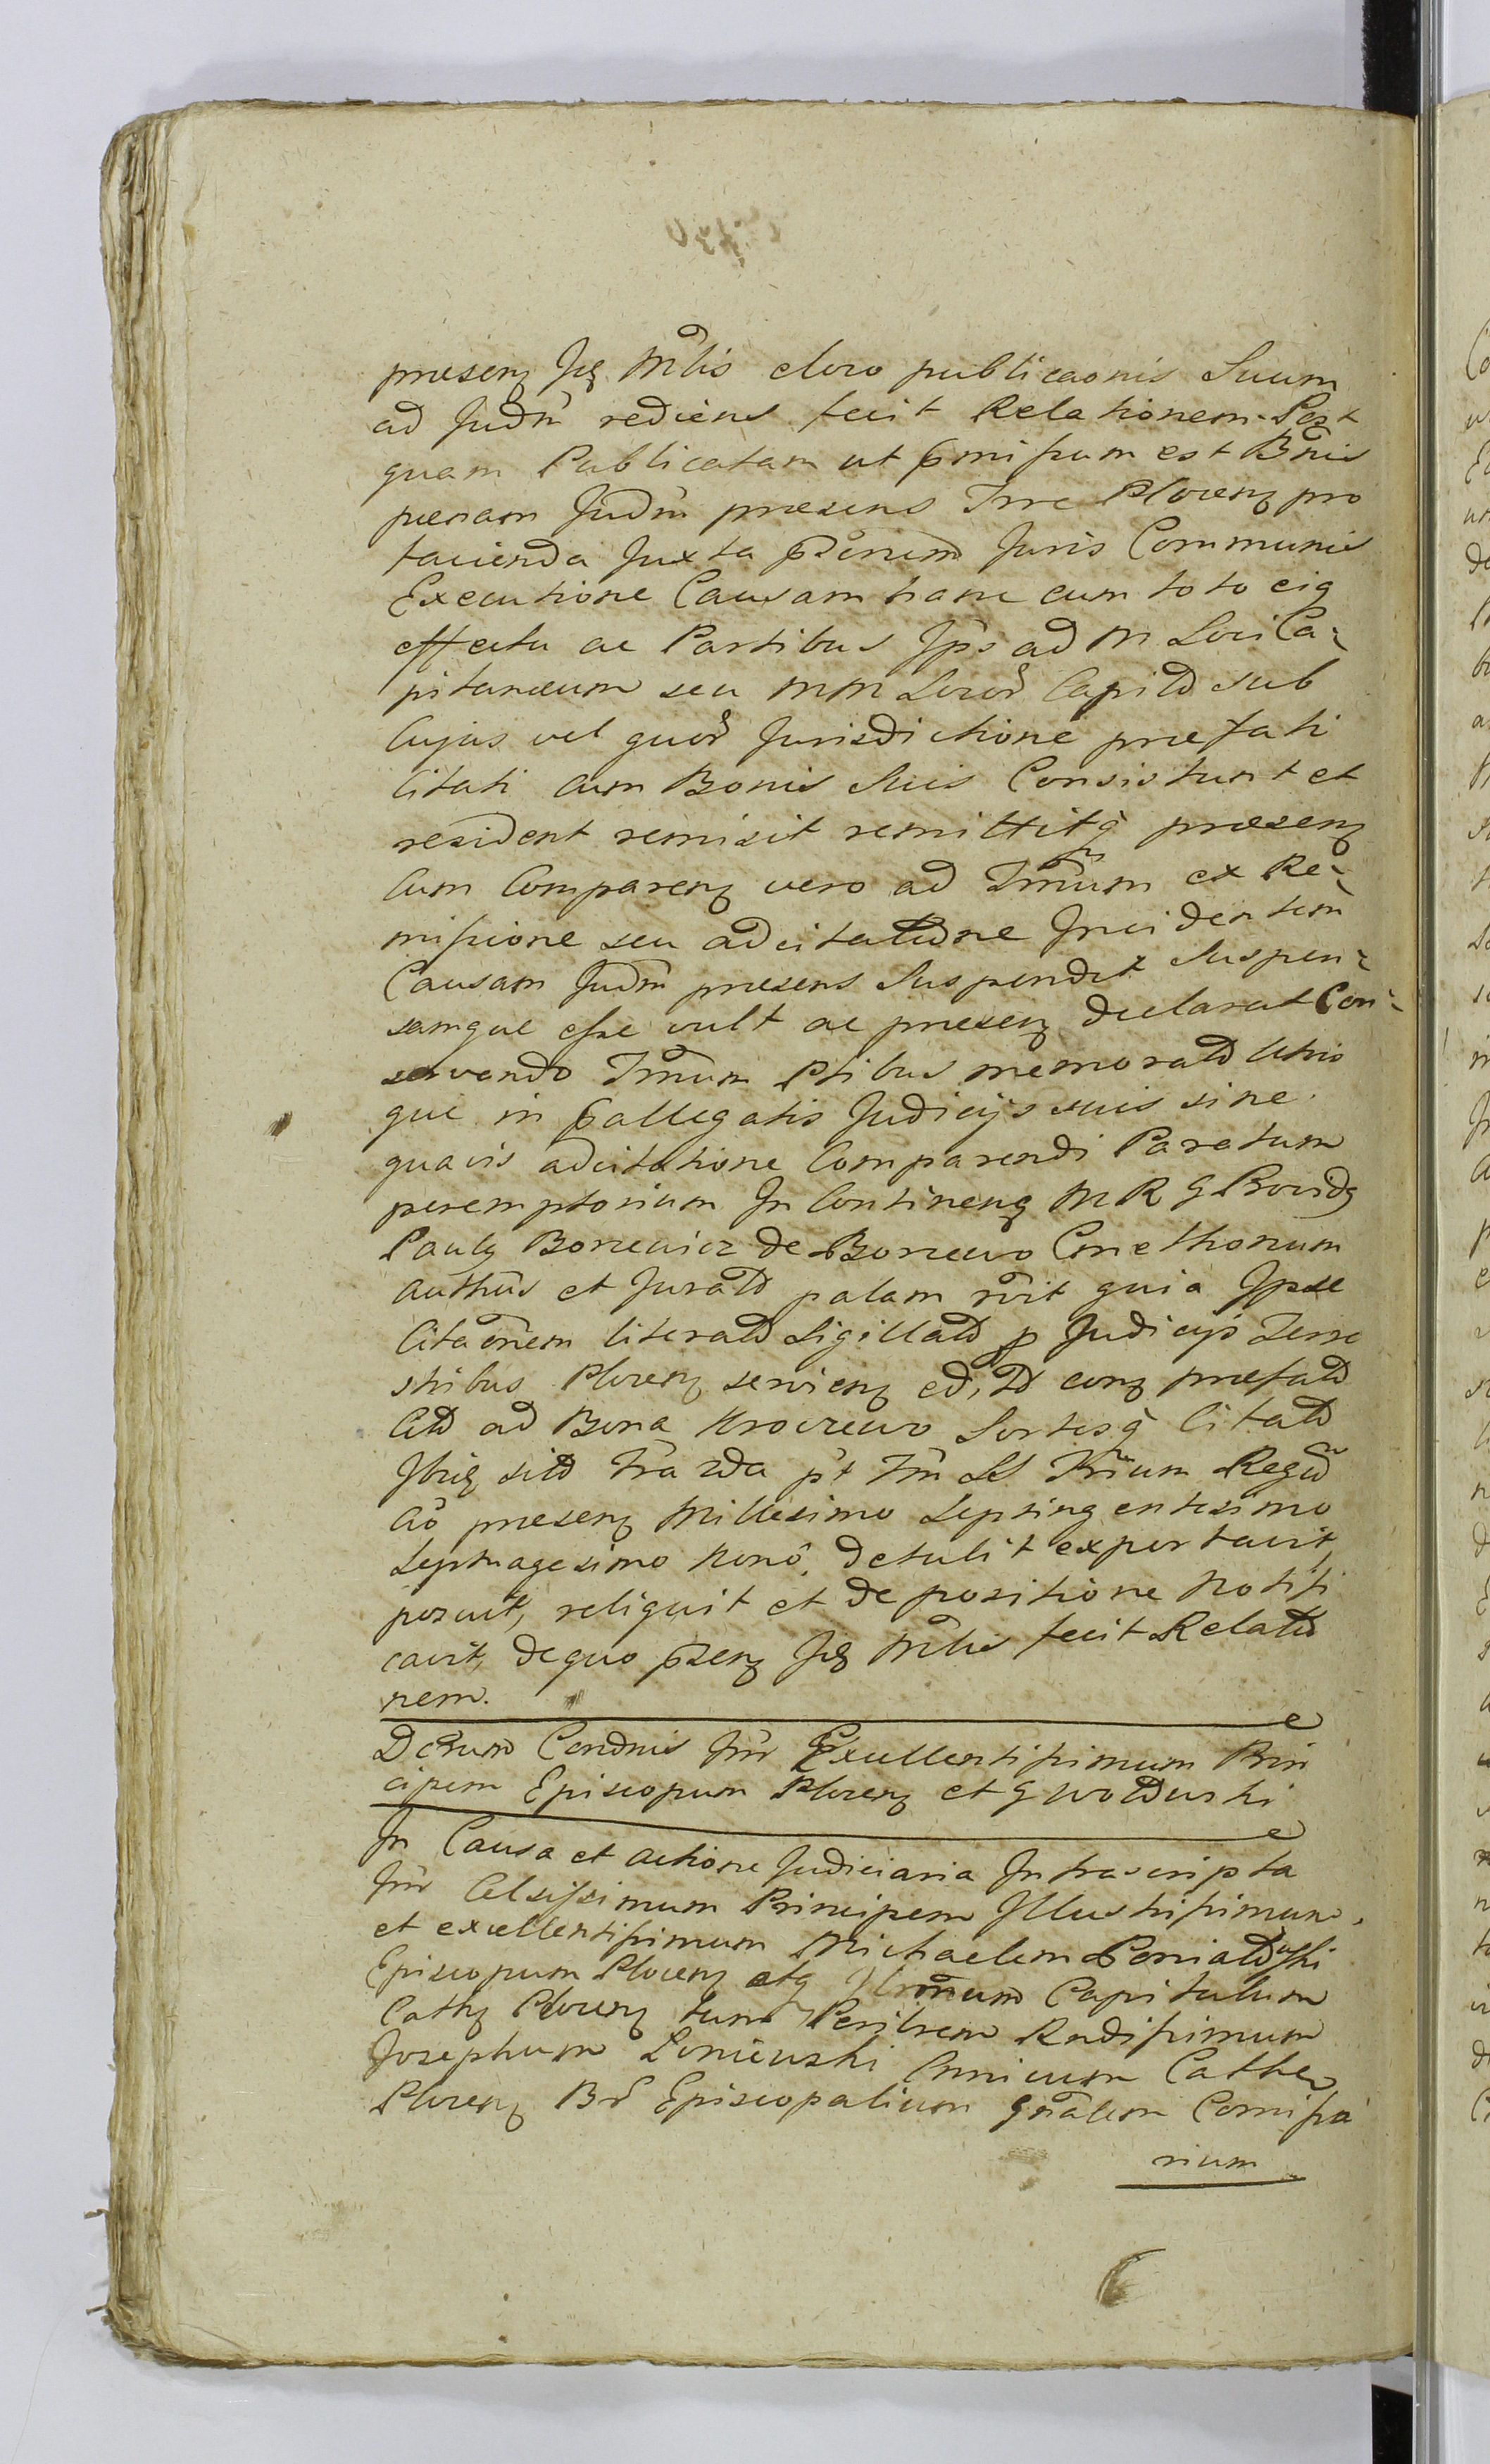 presenq Jq Mtlis eloro publicaonis Suum
ad Judm rediens fecit Relationem. Post
quam Publicatam ut pmissum est Bnis
penam Judm praesens Trre Plocenq pro
facienda Juxta Juris Communis
Executione Causam hanc cum toto eiq
effectu ac Partibus Jps ad M Loci Ca-
pitaneum seu MM Locor Capitd sub
Cujus vel quor Jurisdictione praefati
Citati cum Bonis Suis Consistunt et
resident remisit remittitq praesenq
Cum Comparenq vero ad Trnum ex Re-
missione seu adcitatione Incidentem
Causam Judm praesens Suspendit Suspen-
samque esse vult ac presenq declarat Con-
servando Trnum Ptibus memoratd Utris
que in pallegatis Judicijs suis sine
quavis adcitatione Comparendi Paratum
peremptorium In Continenq M R G Providq
Paulq Boncuicz de Boncewo Cmethonum
authus et Juratd palam rvit quia Ipse
Citaonem literatd Sigillatd p Judicijs Terre
stribus Plocenq servienq ed, Td eorq praefatd
Citd ad Bona Krocewo Sortesq Citatd
Jbiq sitd fra 2da pt fm SS Trium Regu
Ao presenq Millesimo Septingentesimo
Septuagesimo Nono, detulit exportavit
posuit, reliquit et de positione Notifi
cavit, de quo pzenq Jq Mtlis fecit Relatio
nem.
Dcrum Condnis Inr Excellentissimum Prin
cipem Episcopum Plocenq et Gwozdzewski
In Causa et actione Judiciaria Infrascripta
Inr Celsissimum Principem Illustrissimum,
et excellentissimum Michaelem Poniatowski
Episcopum Plocenq atq Capitulum
Cathq Plocenq tum Perilrem Rndissimum
Josephum Loniewski Cnnicum Cathed
Plocenq Br Episcopalium Gnalem Comissa
rium